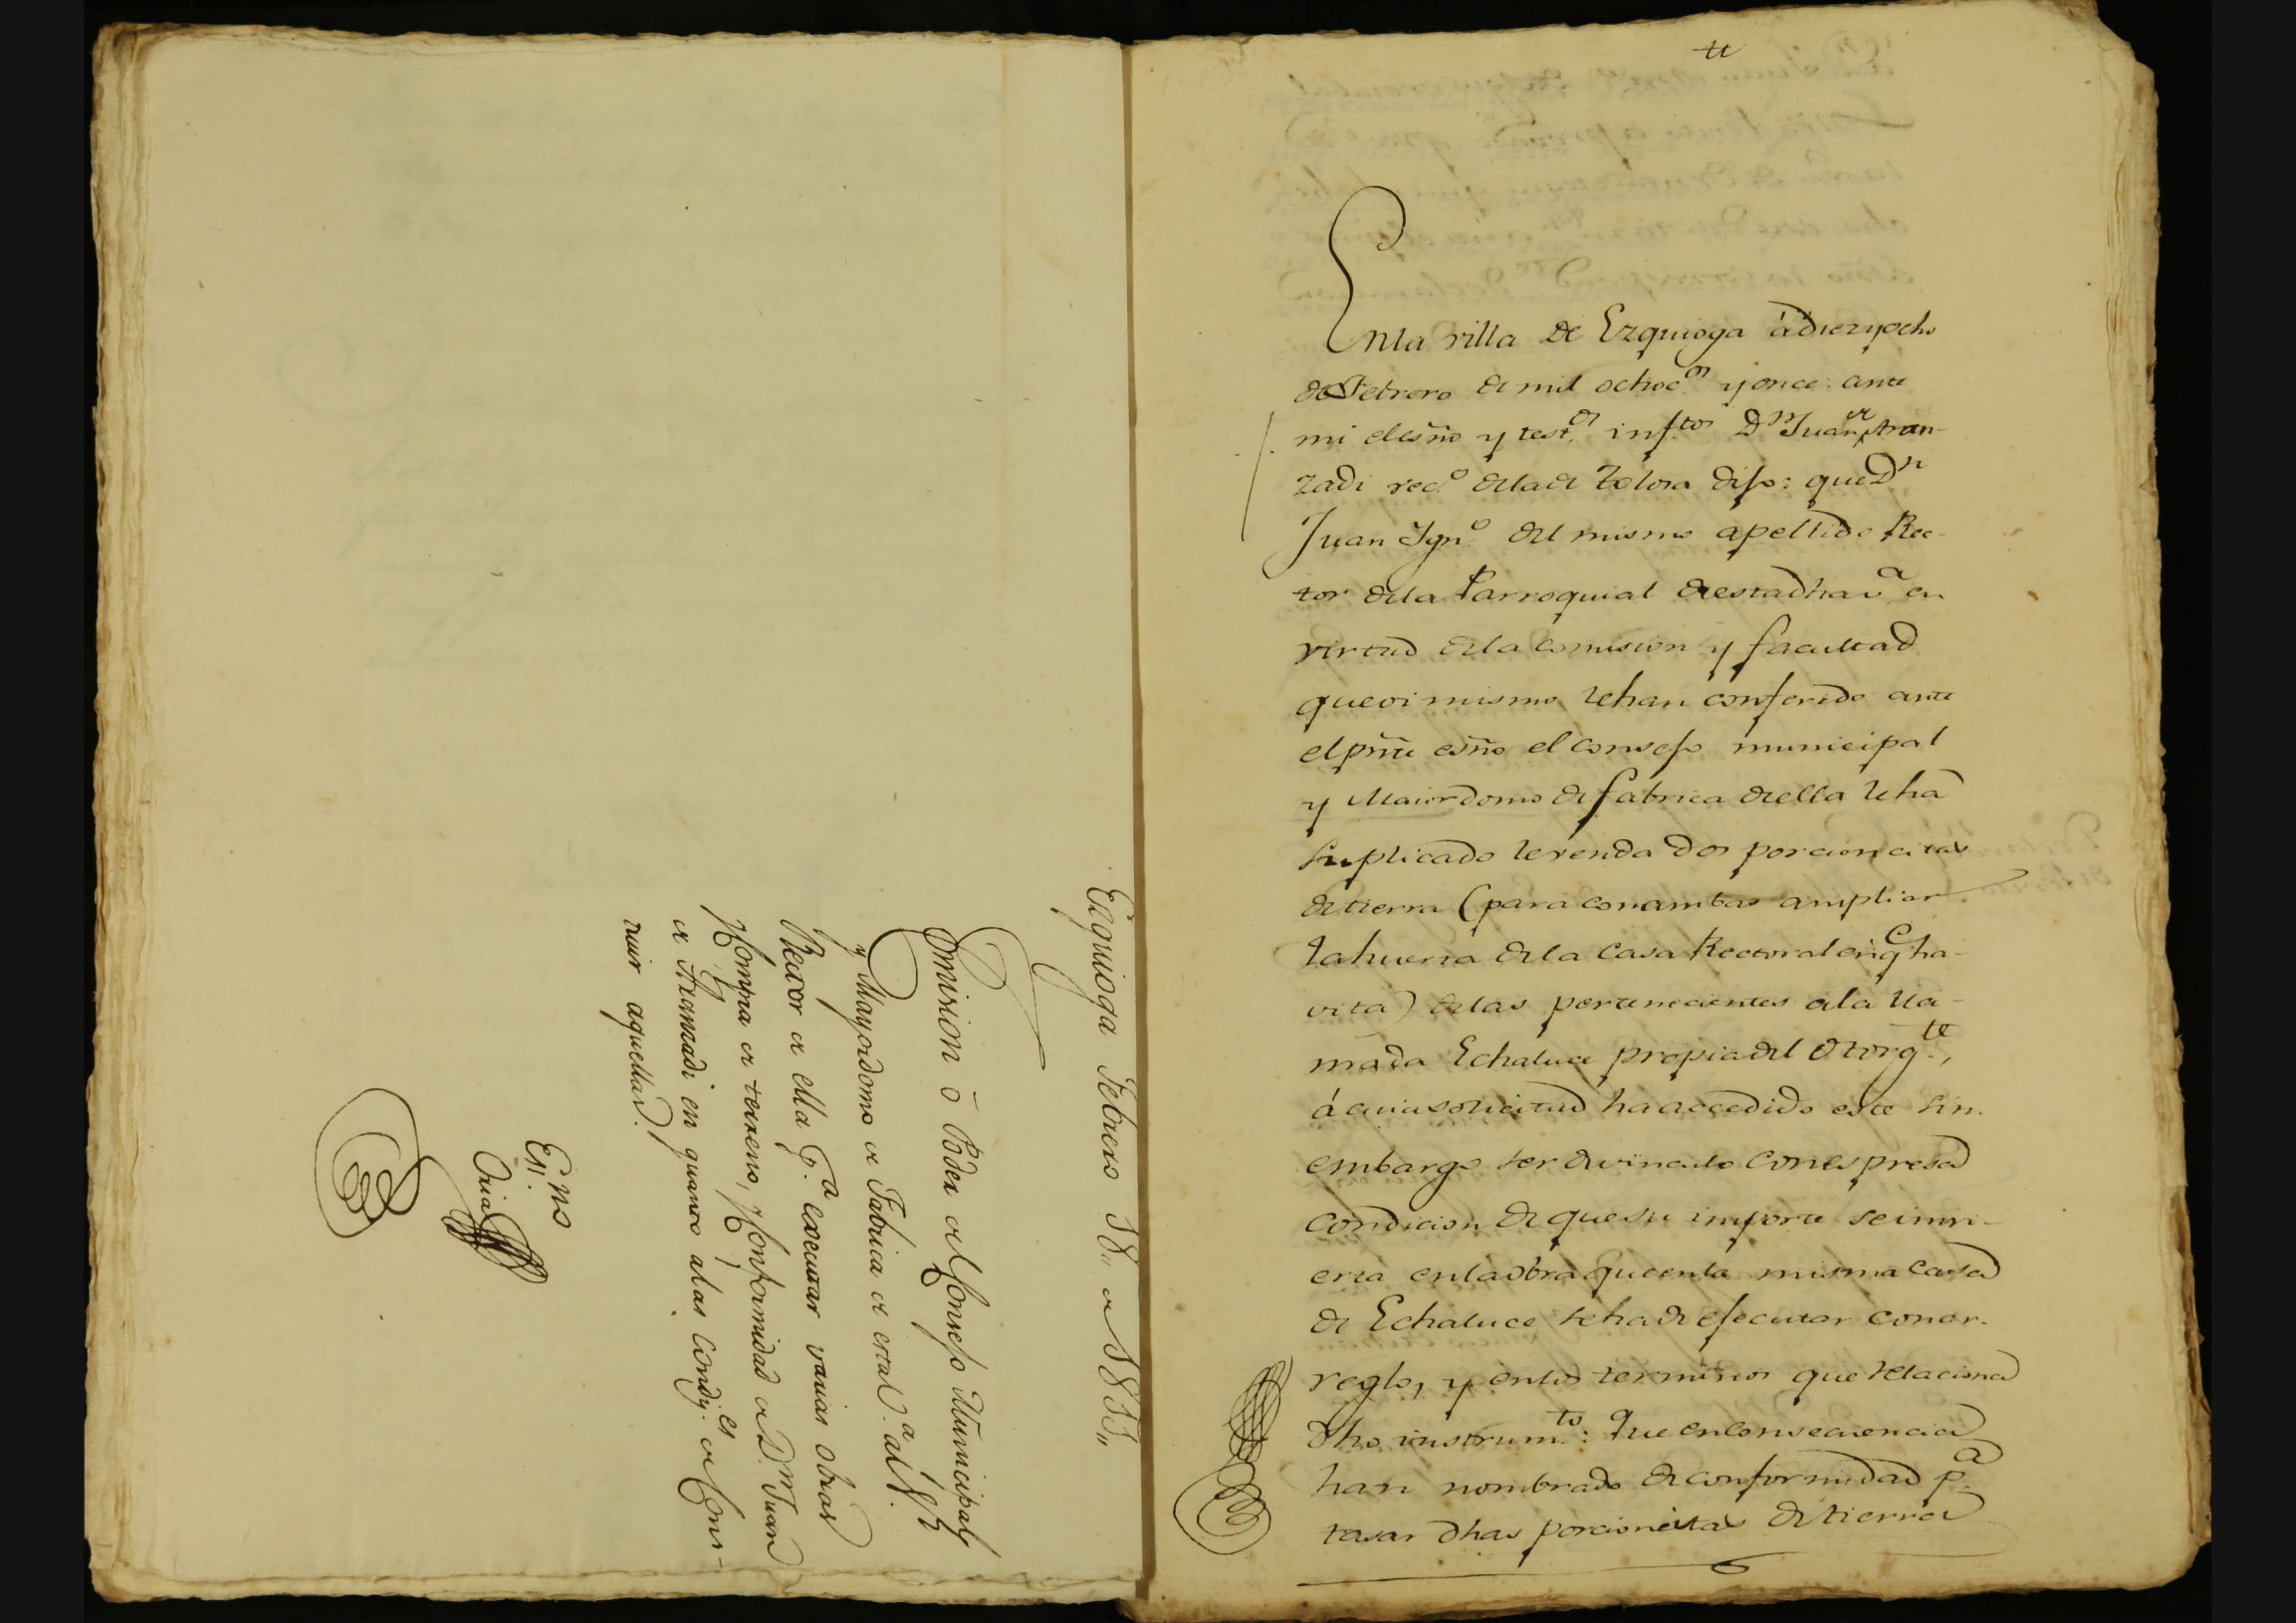 Ezquioga Febrero 18,, de 1811,,
Comision ó Poder del Consejo Municipal
y Mayordomo de Fabrica de esta V.ª al S.r
Rector de ella p.ª executar varias obras
Compra de terreno, Conformidad de D.n Juan
de Aranzadi en quanto a las Condiz.es de Cons-
truir aquellas.
Es.no
Oria
En la villa de Ezquioga á diez y ocho
de Febrero de mil ochoc.s y once: ante
mi el esño y test.s inf.tos D.n Juan de Aran-
zadi vec.º de la de Tolosa dijo: que D.n
Juan Ygn.º del mismo apellido Rec-
tor de la Parroquial de esta dha v.ª en
virtud de la comision y facultad
que oi mismo le han conferido ante
el pñte esño el Consejo municipal
y Maiordomo de fabrica de ella le ha
suplicado le venda dos porcioncitas
de tierra (para con ambas ampliar
la huerta de la Casa Rectoral en q.e ha-
vita) de las pertenecientes a la lla-
mada Echaluce propia del Otorg.te,
á cuia solicitud ha accedido este sin
embargo ser de vinculo con espresa
condicion de que su importe se invi-
erta en la obra que en la misma Casa
de Echaluce se ha de ejecutar con ar-
reglo, y en los terminos que relaciona
dho instrum.to: Que en consecuencia
han nombrado de conformidad p.ª
tasar dhas porcioncitas de tierra